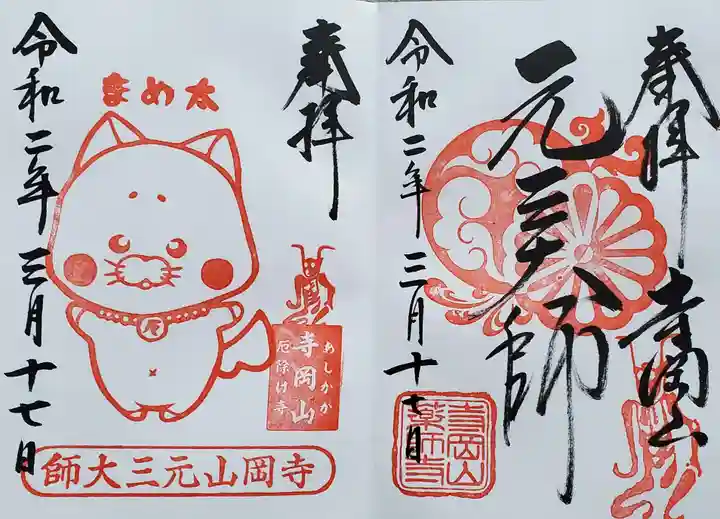 奉拝
寺岡山
元三大師
令和二年三月十七日
寺岡山
薬師寺
奉拝
まめ太
令和二年三月十七日
あしかが
寺岡山
厄除け寺
師大三元山岡寺